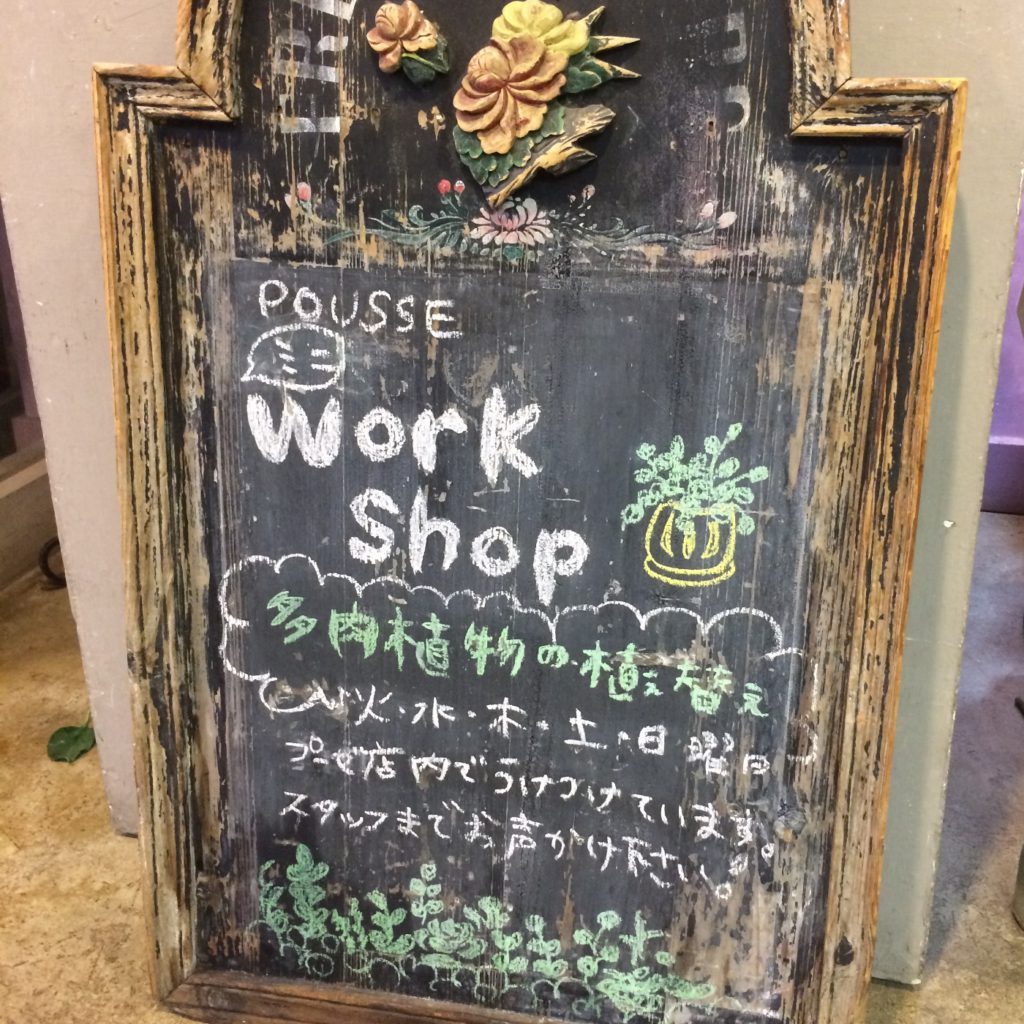 POUSSE
ミニ
Work
Shop
多肉植物の植え替え
火・水・木・土・日曜日
プーゼ店内でうけつけています。
スタッフまでお声がけ下さい。